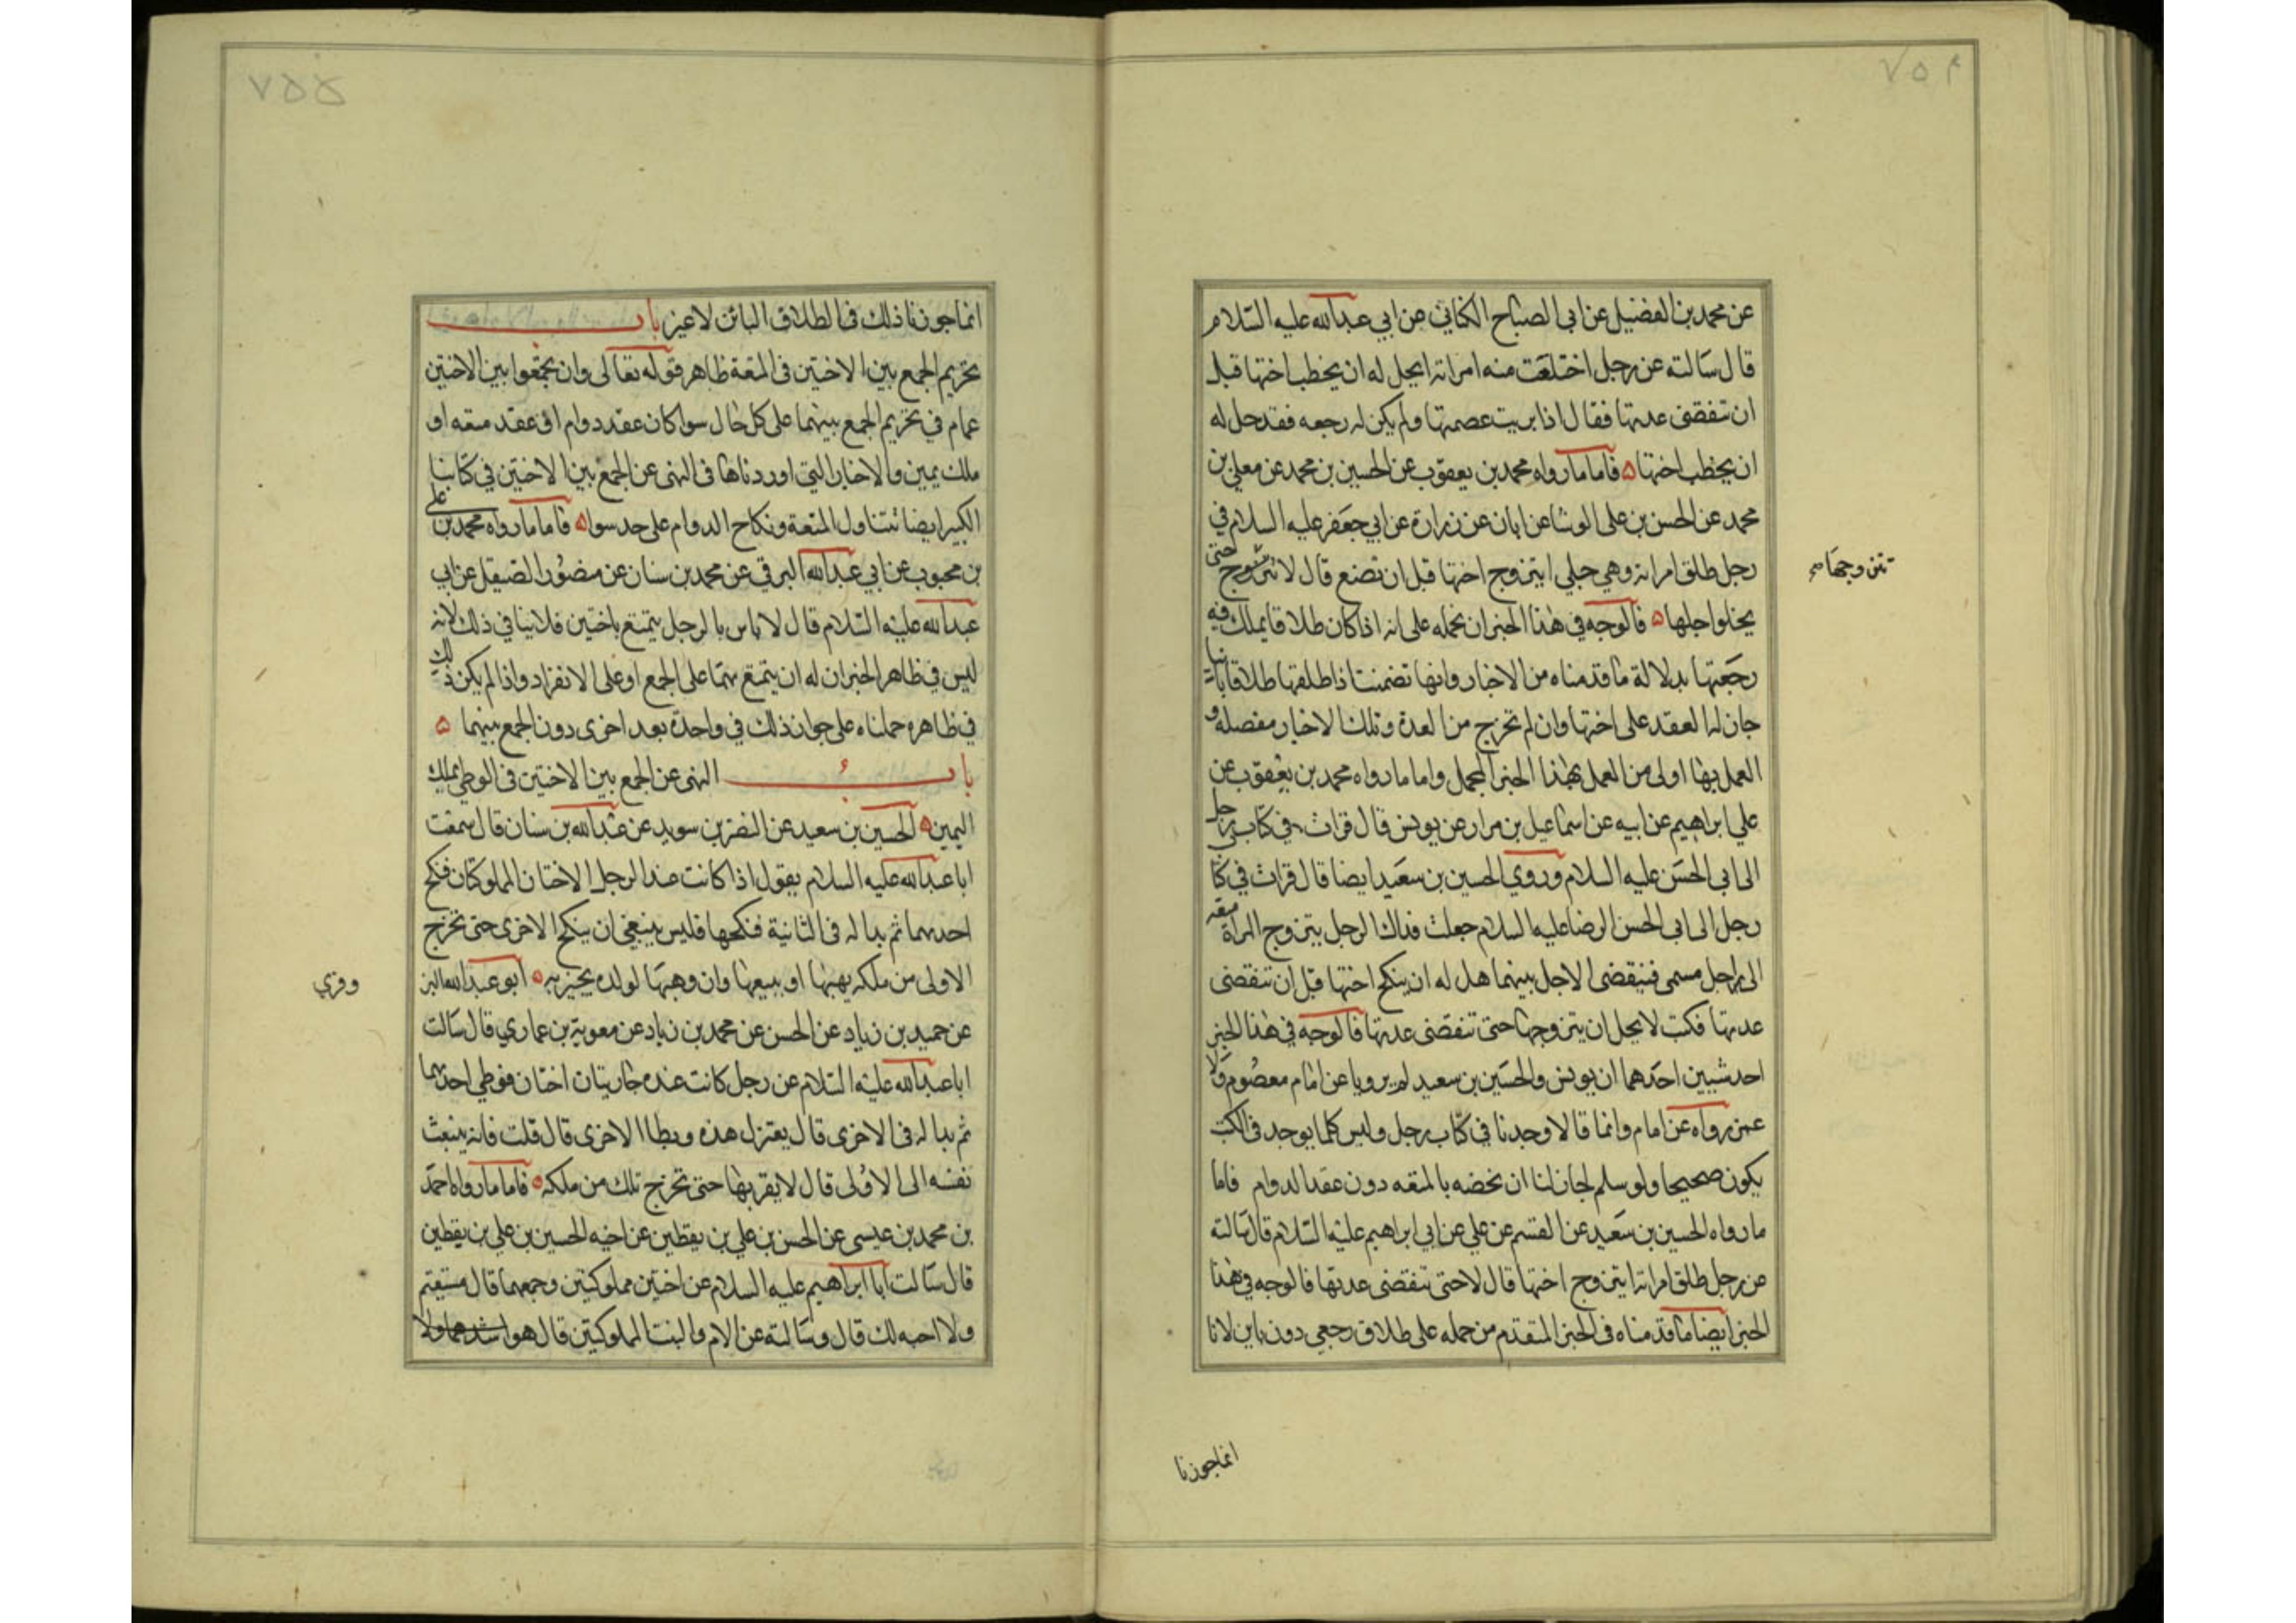 ٧٥٤
عن محمد بن الفضيل عن ابى الصباح الكنانى عن ابي عبدالله عليه السّلام
قال سالته عن رجل اختلعت منه امراته ايحل له ان يخطب اختها قبل
ان تنقضى عدتها فقال اذا بريت عصمتها ولم يكن له رجعه فقد حل له
ان يخطب اختها ه فاما مارواه محمد بن يعقوب عن الحسين بن محمد عن معلى بن
محمد عن الحسن بن على الوشا عن ابان عن زرارة عن ابي جعفر عليه السلام في
رجل طلق امراته وهي حبلى ايتزوج اختها قبل ان تضع قال لا يتزوج حتى
يتزوجها
يخلوا اجلها ه فالوجه في هذا الخبر ان نحمله على انه اذا كان طلاقا يملك فيه
رجعتها بدلالة ما قدمناه من الاخبار وانها تضمنت اذا طلقها طلاقا باينا
جاز له العقد على اختها وان لم تخرج من العدة وتلك الاخبار مفصله و
العمل بها اولى من العمل بهذا الخبر المجمل واما مارواه محمد بن يعقوب عن
علي ابراهيم عن ابيه عن اسماعيل بن مرار عن يونس قال قرات في كتاب رجل
الى ابى الحسن عليه السلام وروي الحسين بن سعيد ايضا قال قرات في كتا
رجل الى ابى الحسن الرضا عليه السلام جعلت فداك الرجل يتزوج المراة متعه
الى اجل مسمى فينقضى الاجل بينهما هل له ان ينكح اختها قبل ان تنقضى
عدتها فكتب لا يحل ان يتزوجها حتى تنقضى عدتها فالوجه في هذا الخبر
احد شيين احدهما ان يونس والحسين بن سعيد لم يرويا عن امام معصوم ولا
عمن رواه عن امام وانما قالا وجدنا في كتاب رجل وليس كلما يوجد فى الكتب
يكون صحيحا ولو سلم لجاز لنا ان نخصه بالمتعه دون عقد الدوام فاما
مارواه الحسين بن سعيد عن القسم عن علي عن ابي ابراهيم عليه السلام قال سالته
عن رجل طلق امراته ايتزوج اختها قال لا حتى تنقضى عدتها فالوجه في هذا
الخبر ايضا ما قدمناه فى الخبر المتقدم من حمله على طلاق رجعي دون باين لانا
انما جوزنا
٧٥٥
انما جوزنا ذلك فى الطلاق البائن لا غير باب
تحريم الجمع بين الاختين فى المتعة ظاهر قوله تعالى وان تجمعوا بين الاختين
عام في تحريم الجمع بينهما على كل حال سوا كان عقد دوام او عقد متعه او
ملك يمين والاخبار التي اوردناها فى النهى عن الجمع بين الاختين في كتابنا
الكبير ايضا تتناول المتعة ونكاح الدوام على حد سوا ه فاما مارواه محمد بن على
بن محبوب عن ابي عبدالله البرقي عن محمد بن سنان عن منصور الصيقل عن ابى
عبدالله عليه السّلام قال لا باس بالرجل يتمتع باختين فلا ينافي ذلك لانه
ليس في ظاهر الخبر ان له ان يتمتع بهما على الجمع او على الانفراد واذا لم يكن ذلك
في ظاهره حملناه على جواز ذلك في واحدة بعد اخرى دون الجمع بينهما ه
باب النهى عن الجمع بين الاختين فى الوطي بملك
اليمين ه الحسين بن سعيد عن النضر بن سويد عن عبدالله بن سنان قال سمعت
ابا عبدالله عليه السلام يقول اذا كانت عند الرجل الاختان المملوكتان فنكح
احديهما ثم بدا له فى الثانية فنكحها فليس ينبغي ان ينكح الاخرى حتى تخرج
الاولى من ملكه يهبها او يبيعها وان وهبها لولده يجيزيه ه ابو عبدالله البز
وفري
عن حميد بن زياد عن الحسن عن محمد بن زياد عن معوية بن عماري قال سالت
ابا عبدالله عليه السّلام عن رجل كانت عنده جاريتان اختان فوطى احديهما
ثم بدا له فى الاخرى قال يعتزل هذه ويطا الاخرى قال قلت فانه ينبعث
نفسه الى الاولى قال لا يقربها حتى تخرج تلك من ملكه ه فاما مارواه احمد
بن محمد بن عيسى عن الحسن بن علي بن يقطين عن اخيه الحسين بن علي بن يقطين
قال سالت ابا ابراهيم عليه السلام عن اختين مملوكتين وجمعهما قال مستقيم
ولا احبه لك قال وسالته عن الام والبنت المملوكتين قال هو اشدهما ولا